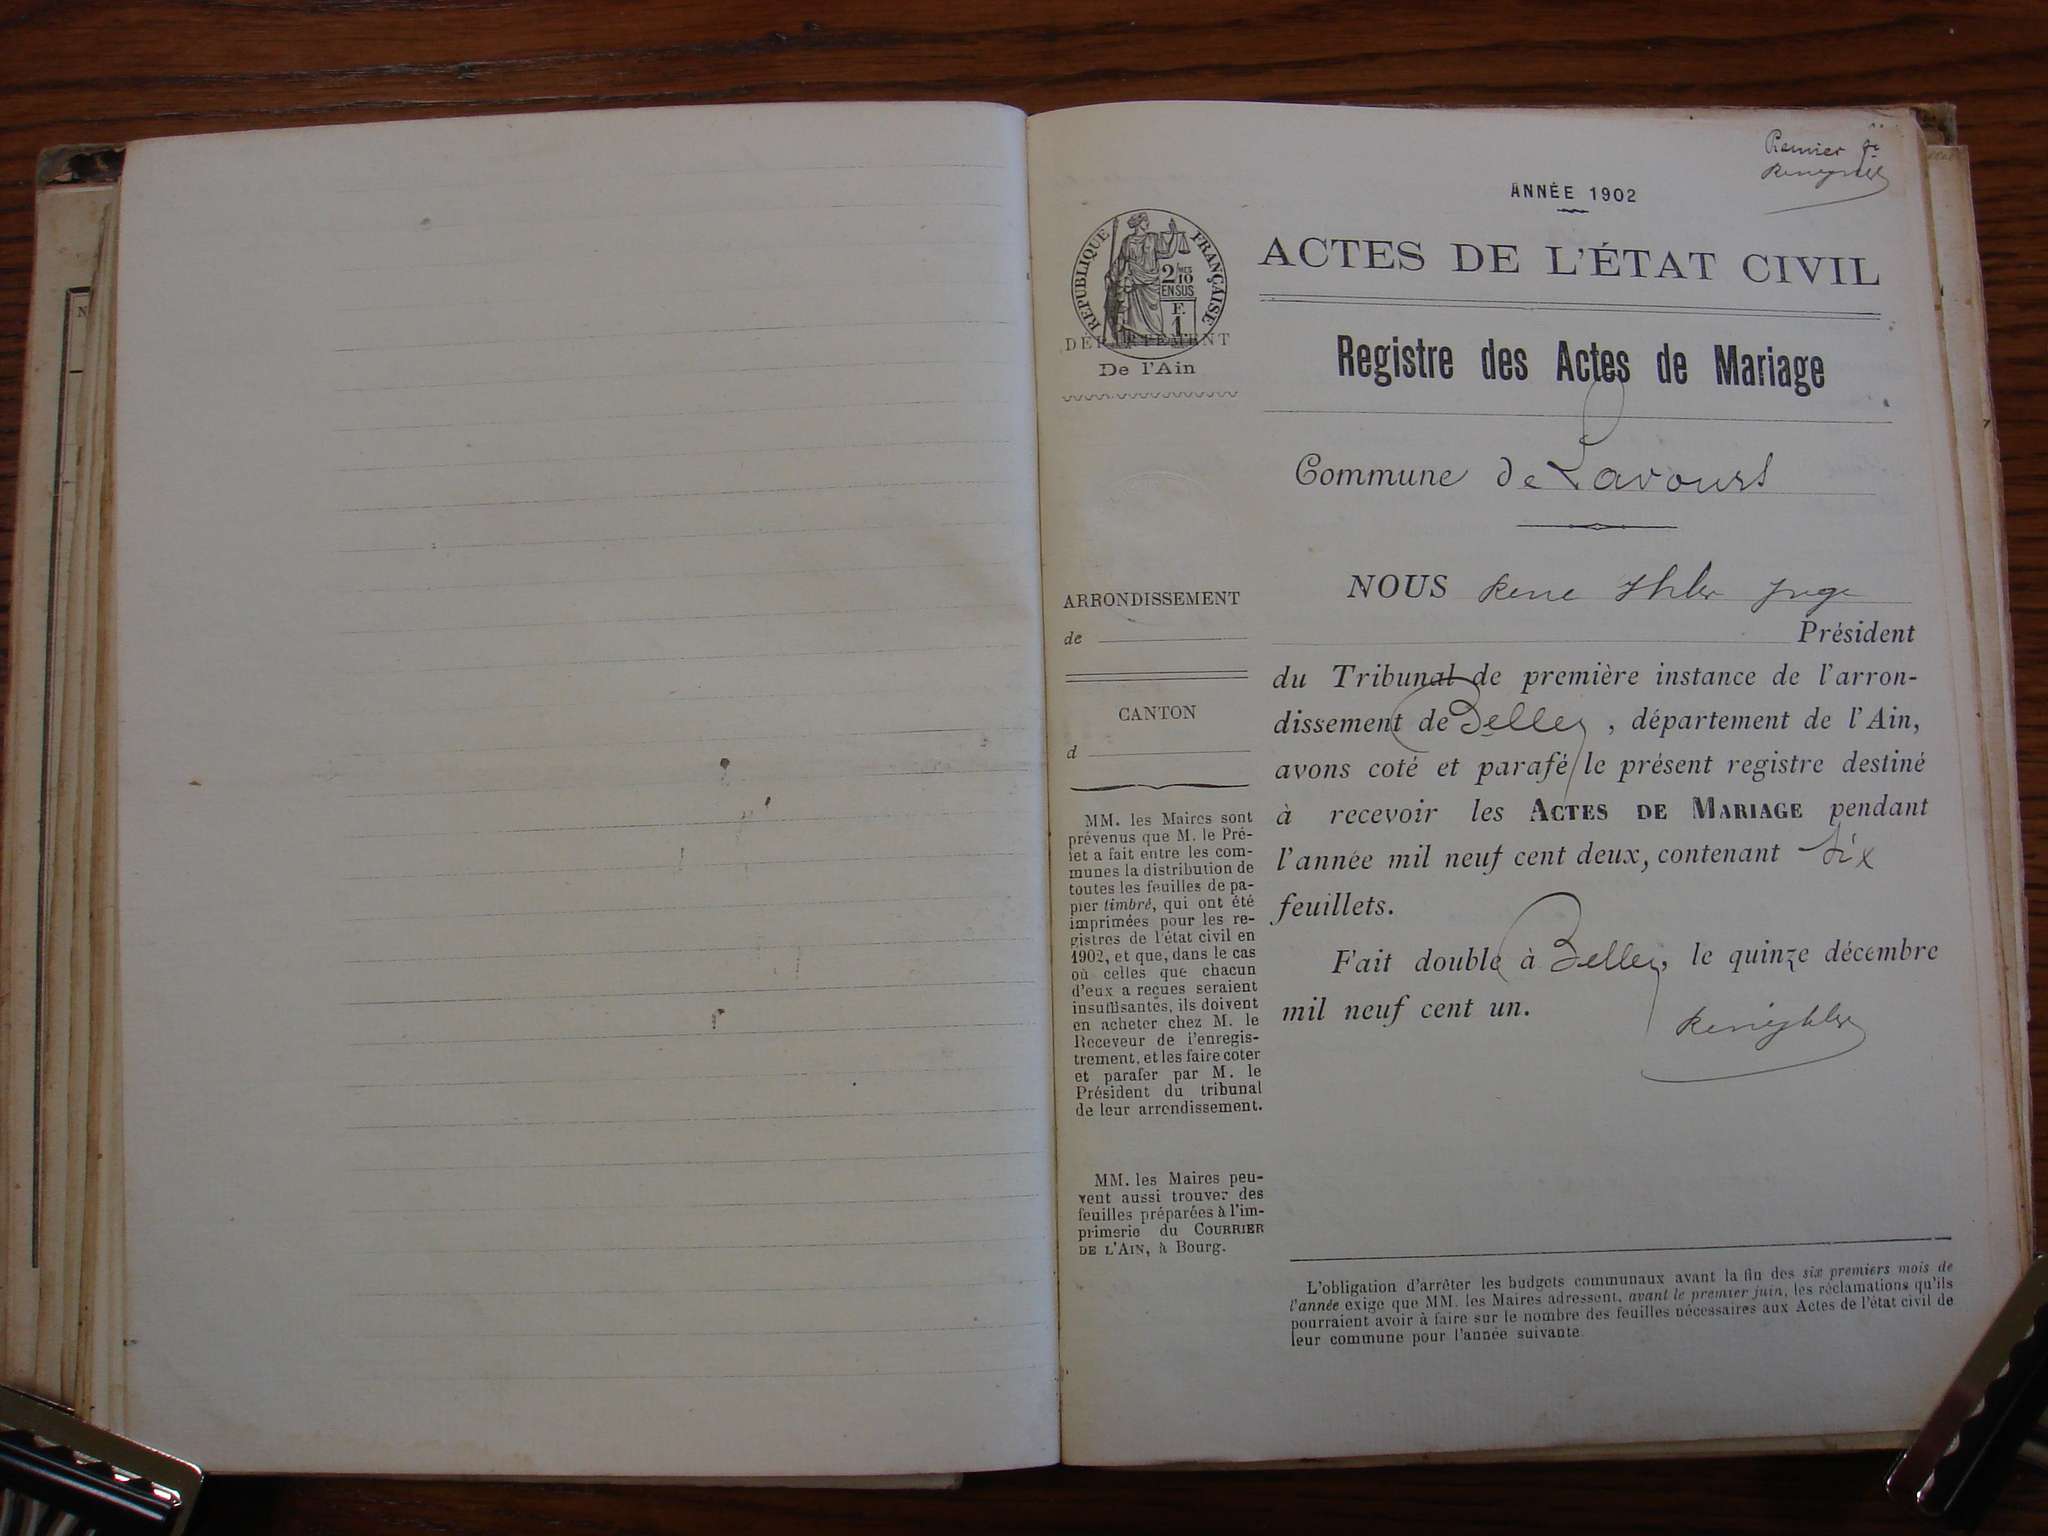 Premier
ANNÉE 1902
RÉPUBLIQUE FRANÇAISE
2/10
EN SUS
F.
1
ACTES DE L'ÉTAT CIVIL
DÉPARTEMENT
De l'Ain
Registre des Actes de Mariage
Commune de Lavours
ARRONDISSEMENT
de
CANTON
d
MM. les Maires sont
prévenus que M. le Pré-
fet a fait entre les com-
munes la distribution de
toutes les feuilles de pa-
pier timbré, qui ont été
imprimées pour les re-
gistres de l'état civil en
1902, et que, dans le cas
où celles que chacun
d'eux a reçues seraient
insuffisantes, ils doivent
en acheter chez M. le
Receveur de l'enregis-
trement, et les faire coter
et parafer par M. le
Président du tribunal
de leur arrondissement.
MM. les Maires peu-
vent aussi trouver des
feuilles préparées à l'im-
primerie du COURRIER
DE L'AIN, à Bourg.
NOUS René Ihler Juge
Président
du Tribunal de première instance de l'arron-
dissement de Belley, département de l'Ain,
avons coté et parafé le présent registre destiné
à recevoir les ACTES DE MARIAGE pendant
l'année mil neuf cent deux, contenant six
feuillets.
Fait double à Belley, le quinze décembre
mil neuf cent un.
L'obligation d'arrêter les budgets communaux avant la fin des six premiers mois de
l'année exige que MM. les Maires adressent, avant le premier juin, les réclamations qu'ils
pourraient avoir à faire sur le nombre des feuilles nécessaires aux Actes de l'état civil de
leur commune pour l'année suivante.